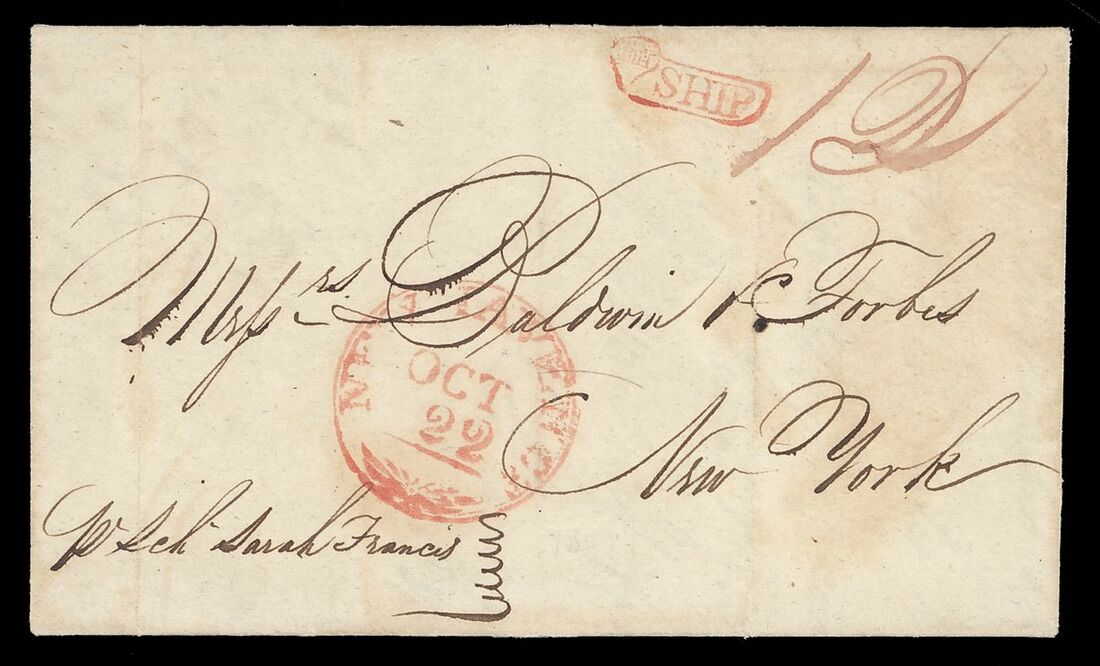 SHIP
Messrs. Baldwin & Forbes
NEW HAVEN
OCT
22
New York
pr Sch Sarah Francis